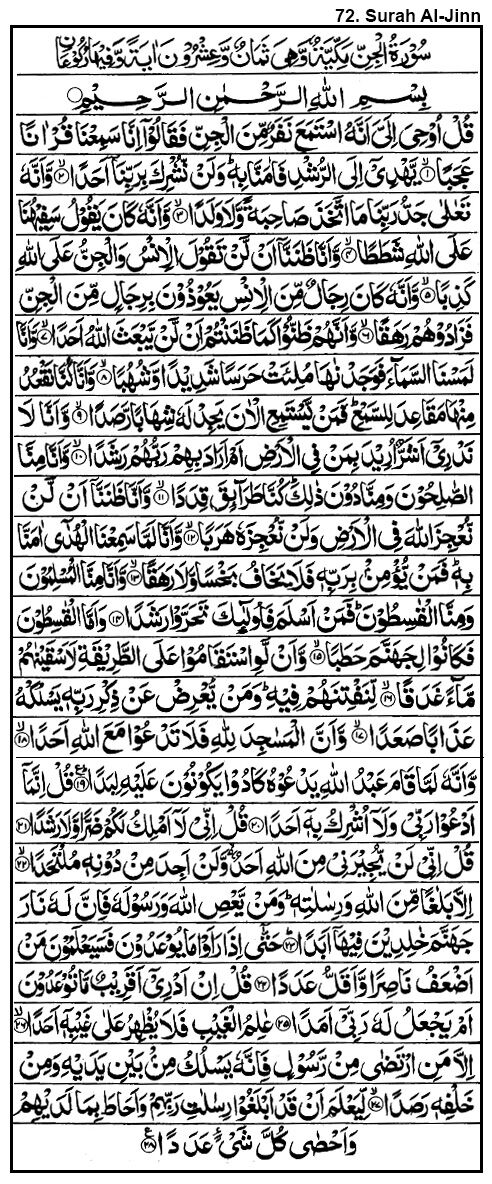 72. Surah Al-Jinn
سُوْرَةُ الْجِنِّ مَكِّيَّةٌ وَّهِيَ ثَمَانٌ وَّعِشْرُوْنَ اٰيَةً وَّفِيْهَا رُكُوْعَانِ
بِسْمِ اللهِ الرَّحْمٰنِ الرَّحِيْمِ
قُلْ اُوْحِيَ اِلَيَّ اَنَّهُ اسْتَمَعَ نَفَرٌ مِّنَ الْجِنِّ فَقَالُوْۤا اِنَّا سَمِعْنَا قُرْاٰنًا
عَجَبًا ۙ﴿۱﴾ يَّهْدِيْۤ اِلَى الرُّشْدِ فَاٰمَنَّا بِهٖ ؕ وَلَنْ نُّشْرِكَ بِرَبِّنَاۤ اَحَدًا ۙ﴿۲﴾ وَّاَنَّهٗ
تَعٰلٰى جَدُّ رَبِّنَا مَا اتَّخَذَ صَاحِبَةً وَّلَا وَلَدًا ۙ﴿۳﴾ وَّاَنَّهٗ كَانَ يَقُوْلُ سَفِيْهُنَا
عَلَى اللهِ شَطَطًا ۙ﴿۴﴾ وَّاَنَّا ظَنَنَّاۤ اَنْ لَّنْ تَقُوْلَ الْاِنْسُ وَالْجِنُّ عَلَى اللهِ
كَذِبًا ۙ﴿۵﴾ وَّاَنَّهٗ كَانَ رِجَالٌ مِّنَ الْاِنْسِ يَعُوْذُوْنَ بِرِجَالٍ مِّنَ الْجِنِّ
فَزَادُوْهُمْ رَهَقًا ۙ﴿۶﴾ وَّاَنَّهُمْ ظَنُّوْا كَمَا ظَنَنْتُمْ اَنْ لَّنْ يَّبْعَثَ اللهُ اَحَدًا ۙ﴿۷﴾ وَّاَنَّا
لَمَسْنَا السَّمَآءَ فَوَجَدْنٰهَا مُلِئَتْ حَرَسًا شَدِيْدًا وَّشُهُبًا ۙ﴿۸﴾ وَّاَنَّا كُنَّا نَقْعُدُ
مِنْهَا مَقَاعِدَ لِلسَّمْعِ ؕ فَمَنْ يَّسْتَمِعِ الْاٰنَ يَجِدْ لَهٗ شِهَابًا رَّصَدًا ۙ﴿۹﴾ وَّاَنَّا لَا
نَدْرِيْۤ اَشَرٌّ اُرِيْدَ بِمَنْ فِي الْاَرْضِ اَمْ اَرَادَ بِهِمْ رَبُّهُمْ رَشَدًا ۙ﴿۱۰﴾ وَّاَنَّا مِنَّا
الصّٰلِحُوْنَ وَمِنَّا دُوْنَ ذٰلِكَ ؕ كُنَّا طَرَآئِقَ قِدَدًا ۙ﴿۱۱﴾ وَّاَنَّا ظَنَنَّاۤ اَنْ لَّنْ
نُّعْجِزَ اللهَ فِي الْاَرْضِ وَلَنْ نُّعْجِزَهٗ هَرَبًا ۙ﴿۱۲﴾ وَّاَنَّا لَمَّا سَمِعْنَا الْهُدٰۤى اٰمَنَّا
بِهٖ ؕ فَمَنْ يُّؤْمِنْۢ بِرَبِّهٖ فَلَا يَخَافُ بَخْسًا وَّلَا رَهَقًا ۙ﴿۱۳﴾ وَّاَنَّا مِنَّا الْمُسْلِمُوْنَ
وَمِنَّا الْقٰسِطُوْنَ ؕ فَمَنْ اَسْلَمَ فَاُولٰٓئِكَ تَحَرَّوْا رَشَدًا ﴿۱۴﴾ وَاَمَّا الْقٰسِطُوْنَ
فَكَانُوْا لِجَهَنَّمَ حَطَبًا ۙ﴿۱۵﴾ وَّاَنْ لَّوِ اسْتَقَامُوْا عَلَى الطَّرِيْقَةِ لَاَسْقَيْنٰهُمْ
مَّآءً غَدَقًا ۙ﴿۱۶﴾ لِّنَفْتِنَهُمْ فِيْهِ ؕ وَمَنْ يُّعْرِضْ عَنْ ذِكْرِ رَبِّهٖ يَسْلُكْهُ
عَذَابًا صَعَدًا ۙ﴿۱۷﴾ وَّاَنَّ الْمَسٰجِدَ لِلّٰهِ فَلَا تَدْعُوْا مَعَ اللهِ اَحَدًا ۙ﴿۱۸﴾
وَّاَنَّهٗ لَمَّا قَامَ عَبْدُ اللهِ يَدْعُوْهُ كَادُوْا يَكُوْنُوْنَ عَلَيْهِ لِبَدًا ؕ﴿۱۹﴾ قُلْ اِنَّمَاۤ
اَدْعُوْا رَبِّيْ وَلَاۤ اُشْرِكُ بِهٖۤ اَحَدًا ﴿۲۰﴾ قُلْ اِنِّيْ لَاۤ اَمْلِكُ لَكُمْ ضَرًّا وَّلَا رَشَدًا ﴿۲۱﴾
قُلْ اِنِّيْ لَنْ يُّجِيْرَنِيْ مِنَ اللهِ اَحَدٌ ۙ وَّلَنْ اَجِدَ مِنْ دُوْنِهٖ مُلْتَحَدًا ۙ﴿۲۲﴾
اِلَّا بَلٰغًا مِّنَ اللهِ وَرِسٰلٰتِهٖ ؕ وَمَنْ يَّعْصِ اللهَ وَرَسُوْلَهٗ فَاِنَّ لَهٗ نَارَ
جَهَنَّمَ خٰلِدِيْنَ فِيْهَاۤ اَبَدًا ؕ﴿۲۳﴾ حَتّٰۤى اِذَا رَاَوْا مَا يُوْعَدُوْنَ فَسَيَعْلَمُوْنَ مَنْ
اَضْعَفُ نَاصِرًا وَّاَقَلُّ عَدَدًا ﴿۲۴﴾ قُلْ اِنْ اَدْرِيْۤ اَقَرِيْبٌ مَّا تُوْعَدُوْنَ
اَمْ يَجْعَلُ لَهٗ رَبِّيْۤ اَمَدًا ﴿۲۵﴾ عٰلِمُ الْغَيْبِ فَلَا يُظْهِرُ عَلٰى غَيْبِهٖۤ اَحَدًا ۙ﴿۲۶﴾
اِلَّا مَنِ ارْتَضٰى مِنْ رَّسُوْلٍ فَاِنَّهٗ يَسْلُكُ مِنْۢ بَيْنِ يَدَيْهِ وَمِنْ
خَلْفِهٖ رَصَدًا ۙ﴿۲۷﴾ لِّيَعْلَمَ اَنْ قَدْ اَبْلَغُوْا رِسٰلٰتِ رَبِّهِمْ وَاَحَاطَ بِمَا لَدَيْهِمْ
وَاَحْصٰى كُلَّ شَيْءٍ عَدَدًا ﴿۲۸﴾